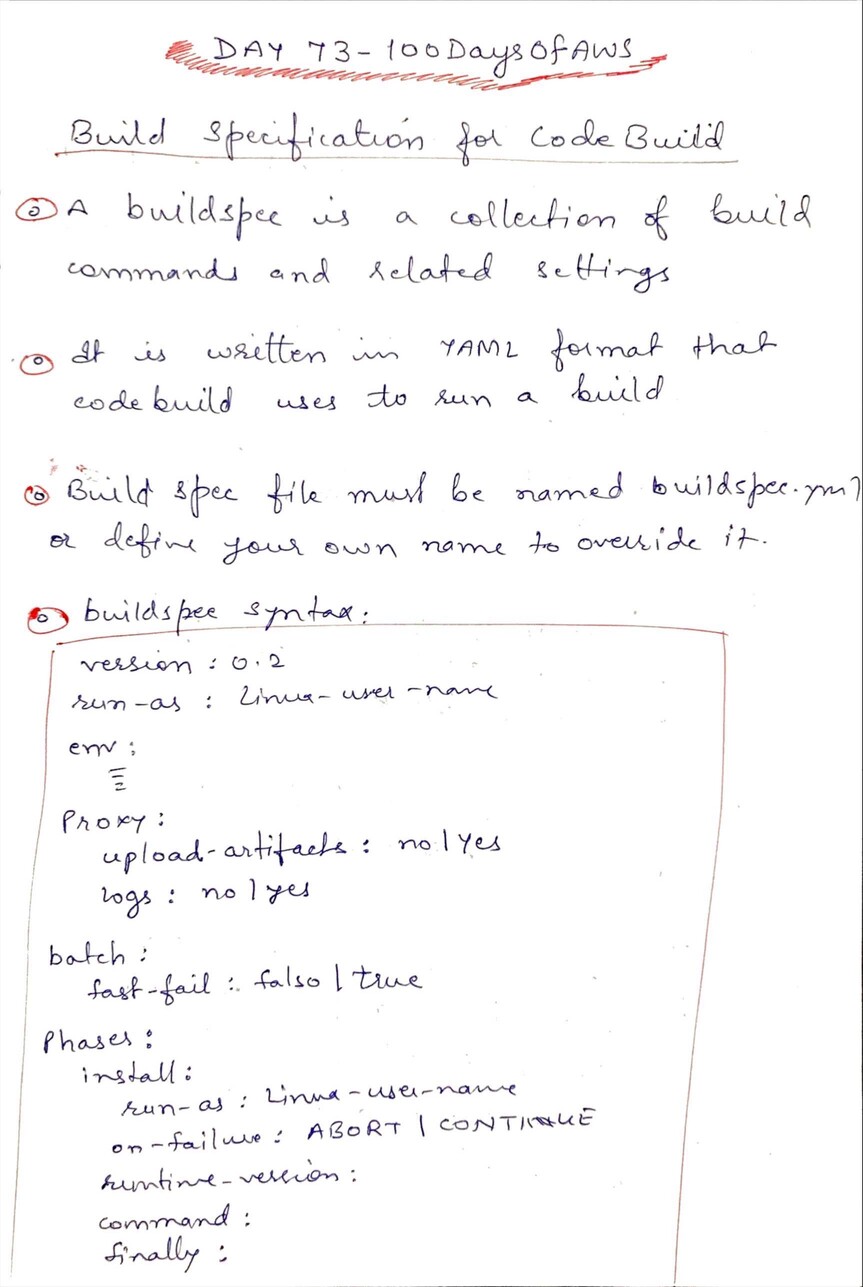 DAY 73-100DaysOfAWS
Build Specification for Code Build
A buildspec is a collection of build
commands and related settings
It is written in YAML format that
codebuild uses to run a build
Build spec file must be named buildspec.yml
or define your own name to override it.
buildspec syntax:
version : 0.2
run-as : Linux-user-name
env :
Proxy :
upload-artifacts : no | yes
logs : no | yes
batch :
fast-fail : falso | true
Phases :
install :
run-as : Linux-user-name
on-failure : ABORT | CONTINUE
runtime-version :
command :
finally :